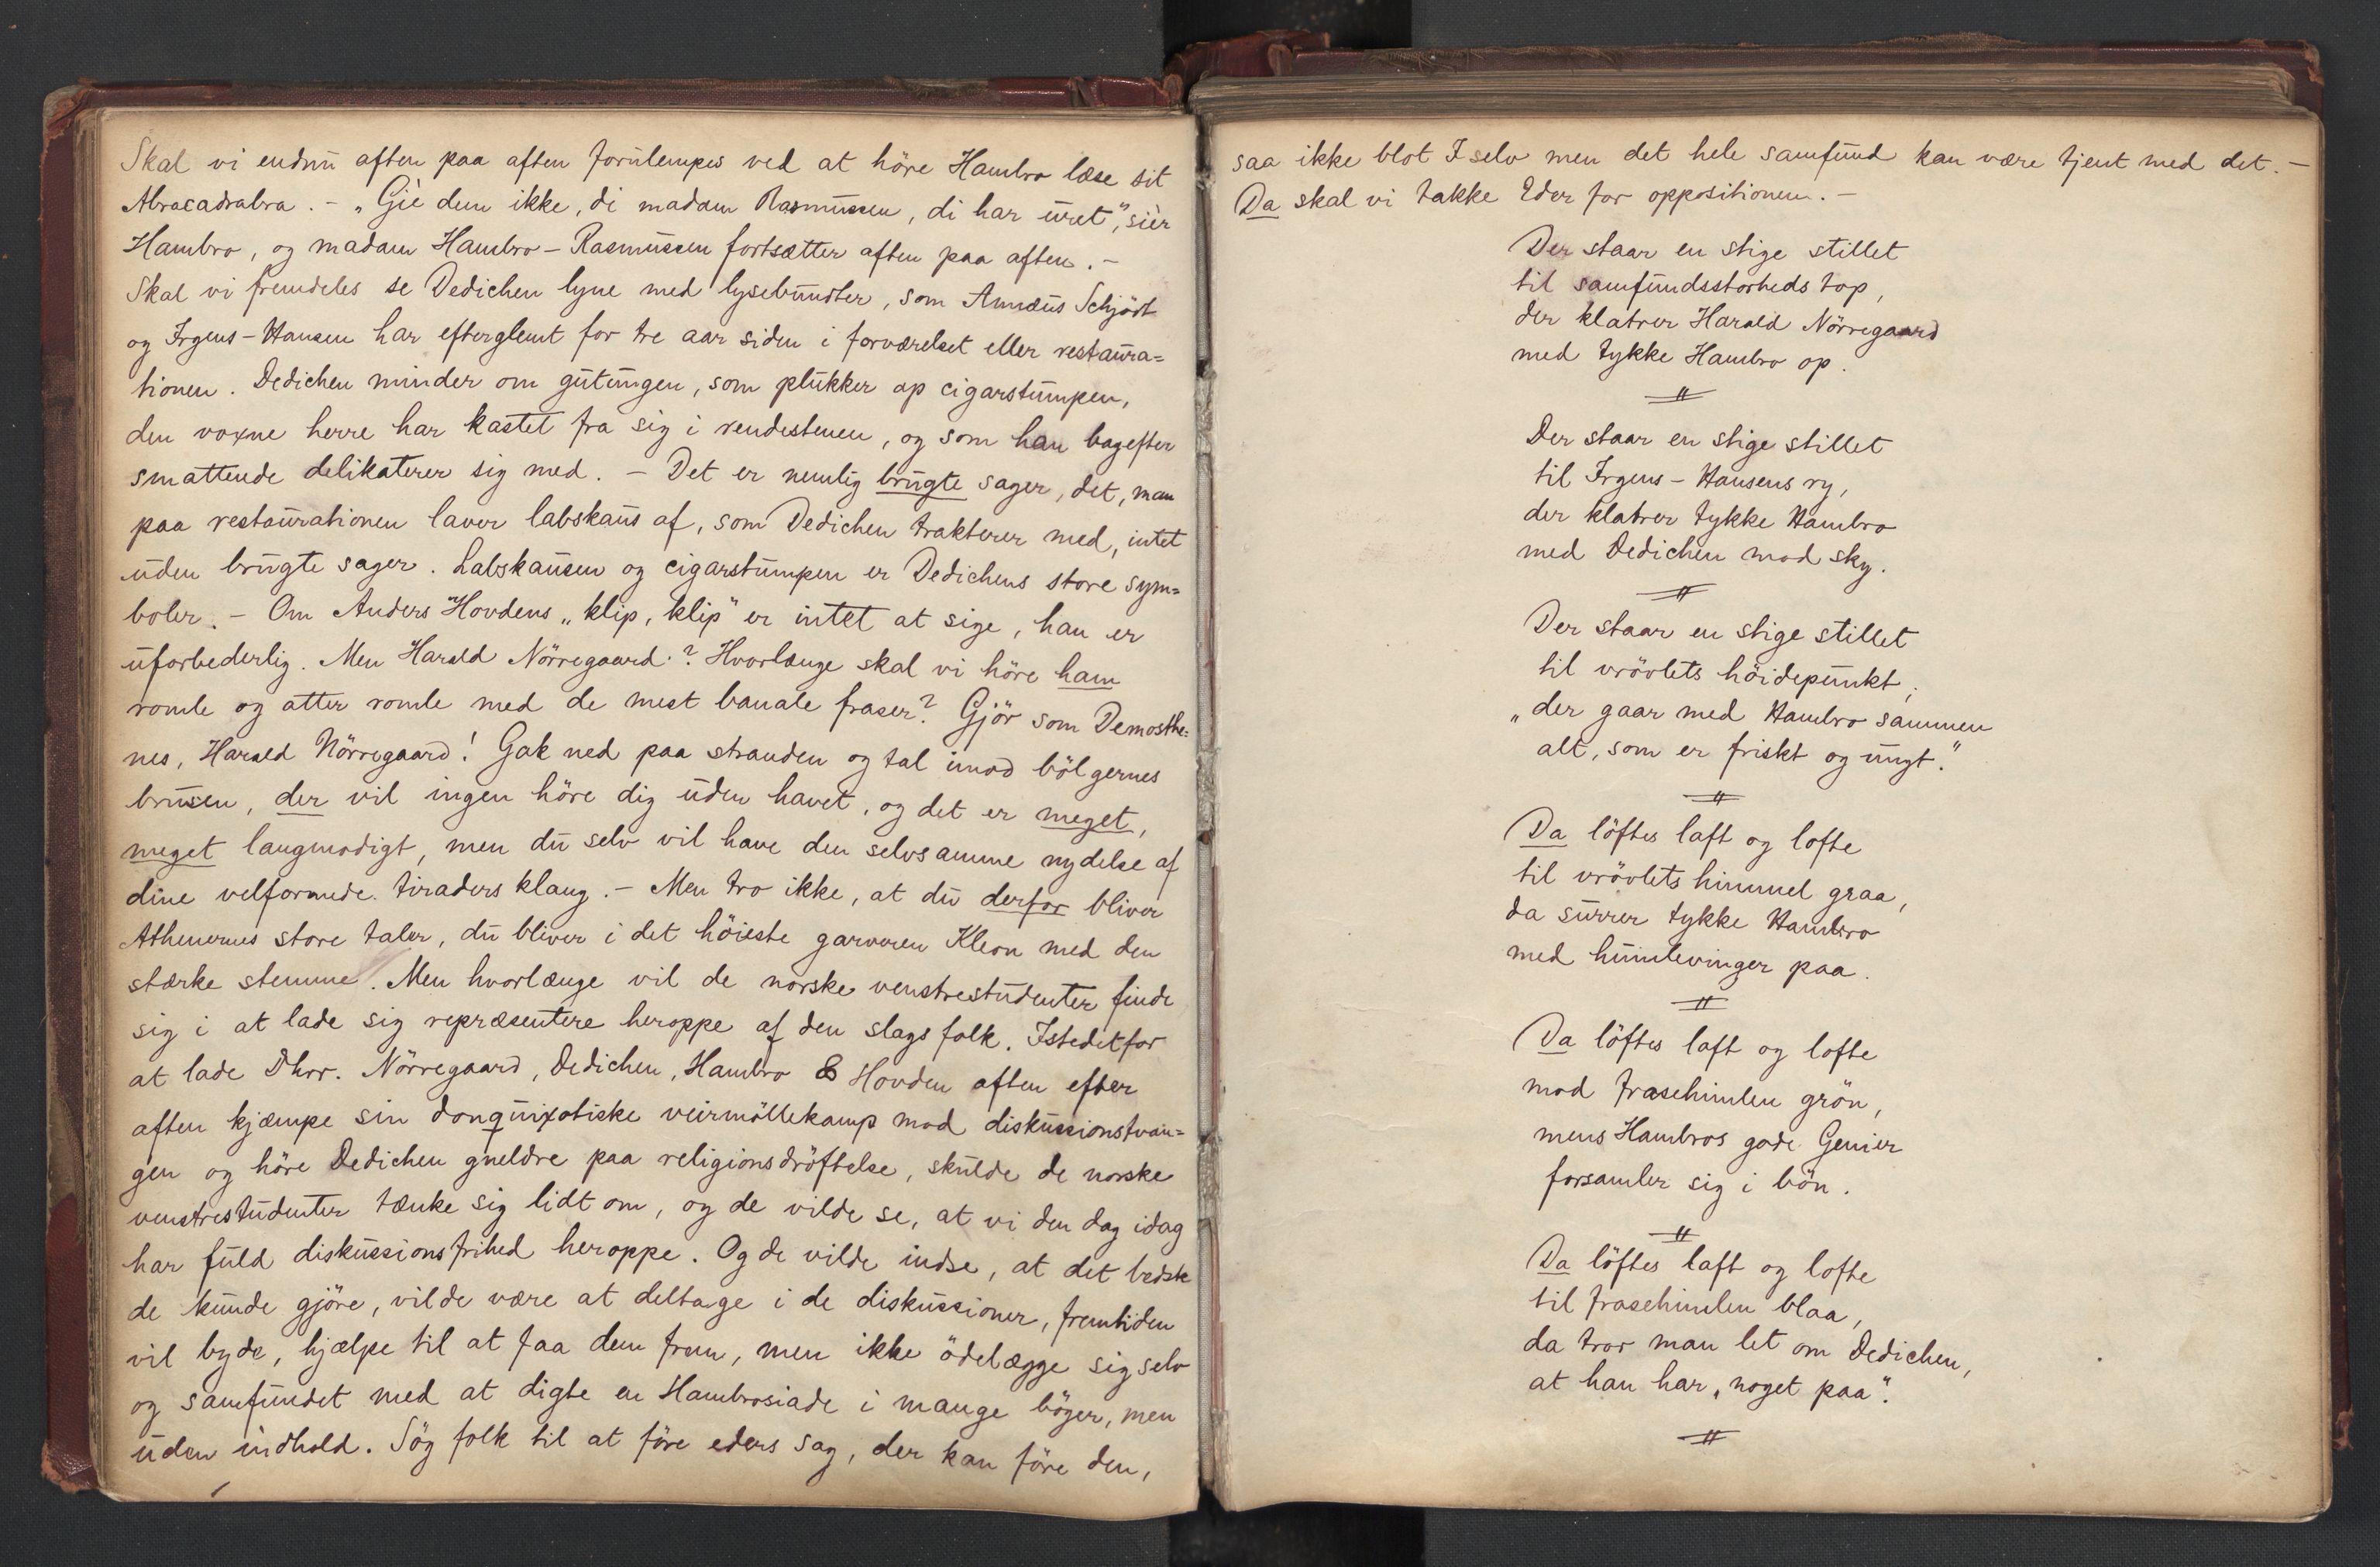 Skal vi endnu aften paa aften forulempes ved at höre Hambro læse sit
Abracadrabra. – „Gie dem ikke, di madam Rasmussen, di har uret”, siér
Hambro, og madam Hambro-Rasmussen fortsætter aften paa aften. –
Skal vi fremdeles se Dedichen lyne med lysebundter, som Annæus Schjödt
og Irgens-Hansen har efterglemt for tre aar siden i forværelset eller restaura=
tionen. Dedichen minder om gutungen, som plukker op cigarstumpen,
den voxne herre har kastet fra sig i rendestenen, og som han bagefter
smattende delikaterer sig med. – Det er nemlig brugte sager, det, man
paa restaurationen laver labskaus af, som Dedichen trakterer med, intet
uden brugte sager. Labskausen og cigarstumpen er Dedichens store sym=
boler. – Om Anders Hovdens „klip, klip” er intet at sige, han er
uforbederlig. Men Harald Nörregaard? Hvorlænge skal vi höre ham
romle og atter romle med de mest banale fraser? Gjör som Demosthe=
nes, Harald Nörregaard! Gak ned paa stranden og tal imod bölgernes
brusen, der vil ingen höre dig uden havet, og det er meget,
meget langmodigt, men du selv vil have den selvsamme nydelse af
dine velformede tiraders klang. – Men tro ikke, at du derfor bliver
Athenernes store taler, du bliver i det höieste garveren Kleon med den
stærke stemme. Men hvorlænge vil de norske venstrestudenter finde
sig i at lade sig repræsentere heroppe af den slags folk. Istedetfor
at lade Dhrr. Nörregaard, Dedichen, Hambro & Hovden aften efter
aften kjæmpe sin donquixotiske veirmöllekamp mod diskussionstvan=
gen og höre Dedichen gneldre paa religionsdröftelse, skulde de norske
venstrestudenter tænke sig lidt om, og de vilde se, at vi den dag idag
har fuld diskussionsfrihed heroppe. Og de vilde indse, at det bedste
de kunde gjöre, vilde være at deltage i de diskussioner, fremtiden
vil byde, hjælpe til at faa dem frem, men ikke ödelægge sig selv
og samfundet med at digte en Hambrosiade i mange böger, men
uden indhold. Sög folk til at före eders sag, der kan före den,
saa ikke blot I selv men det hele samfund kan være tjent med det. –
Da skal vi takke Eder for oppositionen. –
Der staar en stige stillet
til samfundsstorheds top,
der klatrer Harald Nörregaard
med tykke Hambro op.
Der staar en stige stillet
til Irgens-Hansens ry,
der klatrer tykke Hambro
med Dedichen mod sky.
Der staar en stige stillet
til vrövlets höidepunkt;
„der gaar med Hambro sammen
alt, som er friskt og ungt.”
Da löftes laft og lofte
til vrövlets himmel graa,
da surrer tykke Hambro
med humlevinger paa.
Da löftes laft og lofte
mod frasehimlen grön,
mens Hambros gode Genier
forsamler sig i bön.
Da löftes laft og lofte
til frasehimlen blaa,
da tror man let om Dedichen,
at han har „noget paa”.